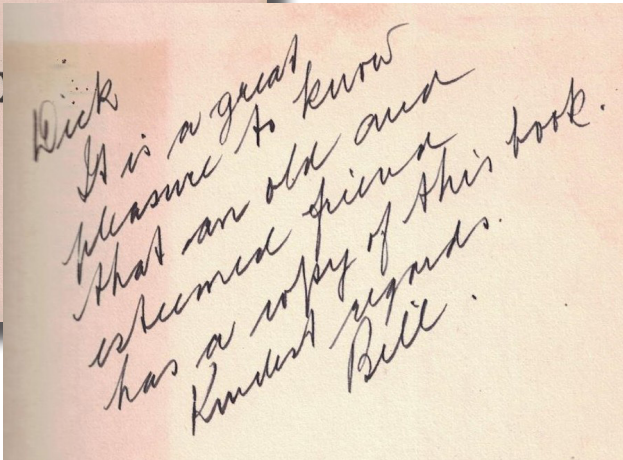 Dick
It is a great
pleasure to know
that an old and
esteemed friend
has a copy of this book.
Kindest regards.
Bill.